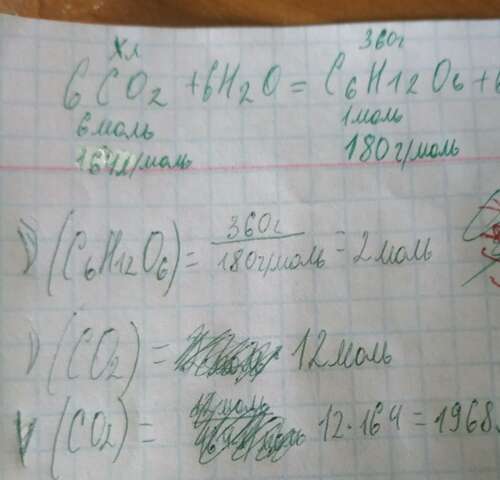 xл 360г
6CO2 + 6H2O = C6H12O6 + 6
6моль 1моль
164л/моль 180г/моль
ν(C6H12O6) = 360г / 180г/моль = 2моль
ν(CO2) = 12моль
V(CO2) = 12·164 = 1968